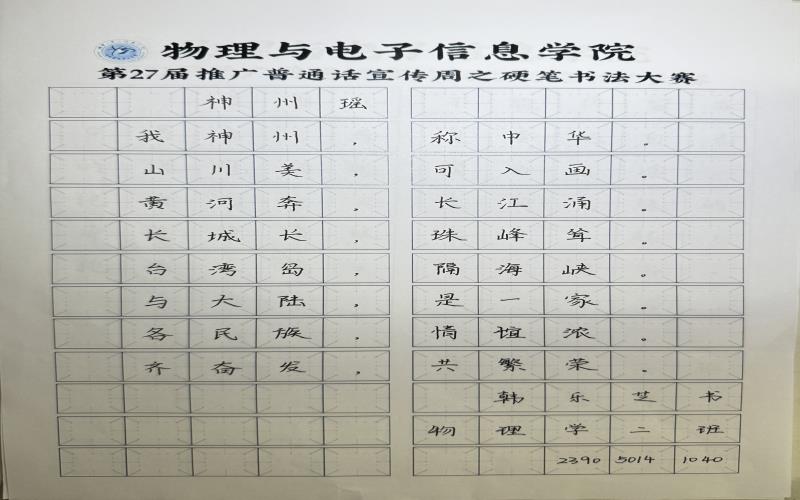 物理与电子信息学院
第27届推广普通话宣传周之硬笔书法大赛
神州瑶
我神州，称中华。
山川美，可入画。
黄河奔，长江涌。
长城长，珠峰耸。
台湾岛，隔海峡。
与大陆，是一家。
各民族，情谊浓。
齐奋发，共繁荣。
韩乐芝书
物理学二班
2390 5014 1040